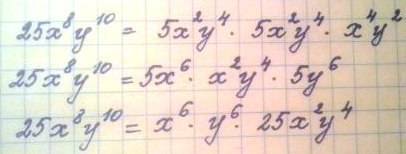 25x⁸y¹⁰ = 5x²y⁴ · 5x²y⁴ · x⁴y²
25x⁸y¹⁰ = 5x⁶ · x²y⁴ · 5y⁶
25x⁸y¹⁰ = x⁶ · y⁶ · 25x²y⁴